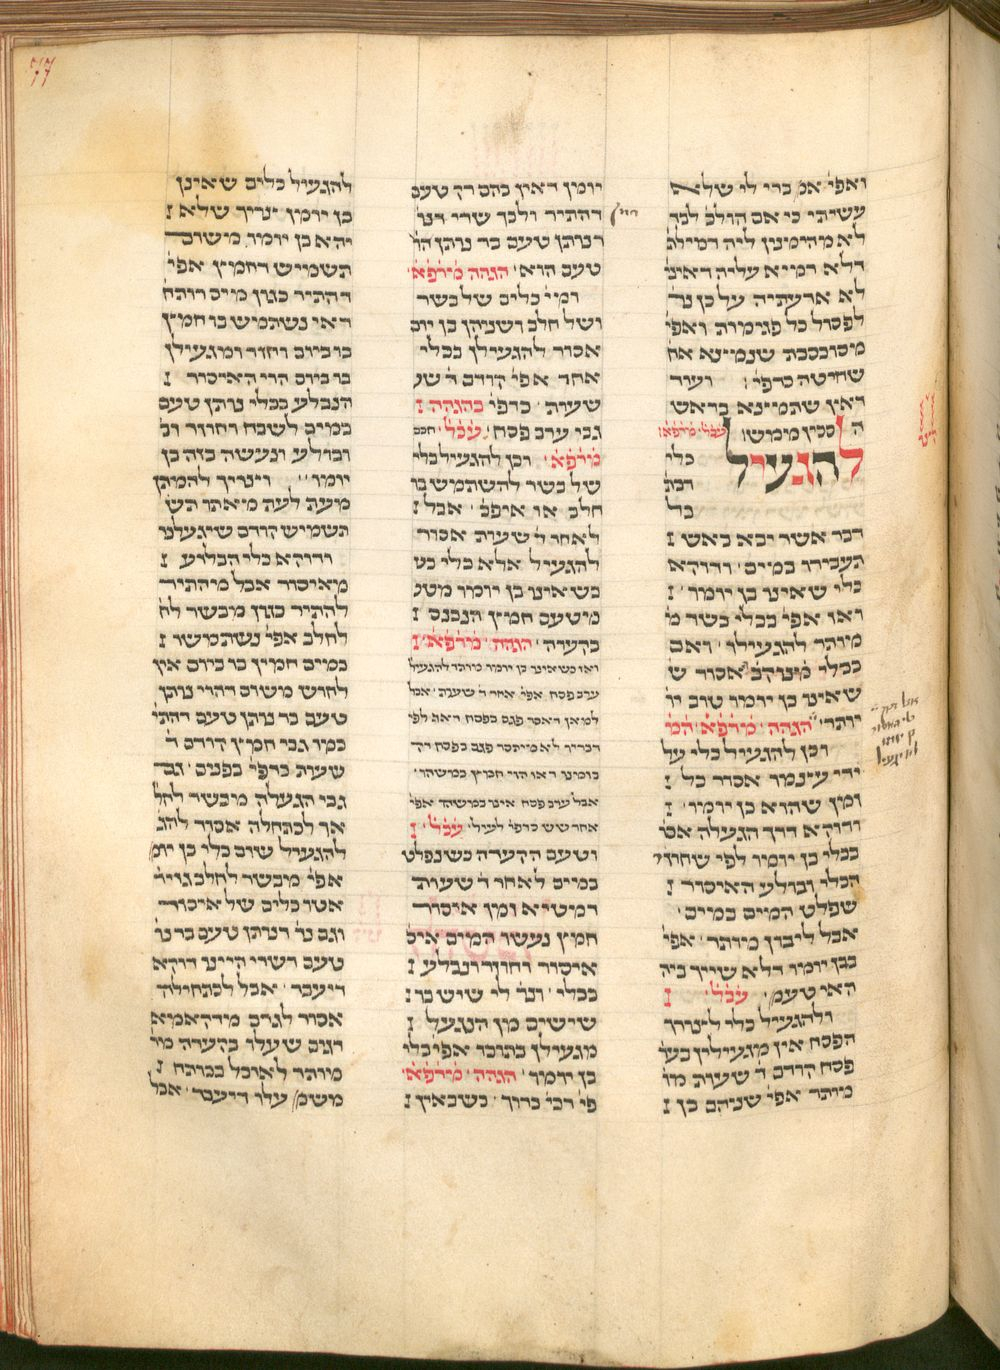 77
ואפי׳ אם ברי לי שלא
עשיתי כי אם הולכ׳ לכך
לא מהימנין ליה דמילת׳
דלא רמיא עליה דאינ׳
לא ארעתיה על כן נר׳
לפסול כל פגימות ואפי׳
מיסובסבת שנמצא אח׳
שחיטה כדפי׳ ועוד
דאין שתמצא בראש
ה סכין מימשו׳ עכל׳ מ׳ר׳פ׳א׳
להגעיל כלי
דבת׳
כל
דבר אשר יבא באש
תעבירו במים׳ ודוקא
כלי שאינו בן יומו׳
ואו אפי׳ בכלי בשר מ׳
מותר להגעילו׳ ואם
בכלי מ׳נוקב׳ אסור ש׳
שאינו בן יומו טוב יו׳
יותר׳ הגהה׳ מ׳ר׳פ׳א׳ המ׳
וכן להגעיל כלי על
ידי עינמו׳ אסור כל
זמן שהוא בן יומו׳
ודוקא דרך הגעלה אסו׳
בכלי בן יומו לפי שחוזר
הכלי ובולע האיסור
שפלט המים במים׳
אבל ליבון מותר׳ אפי׳
בבן יומו דלא שייך ביה
האי טעמ׳ עכל׳
ולהגעיל כלי לצורך
הפסח אין מגעילין בער׳
פסח קודם ד׳ שעות מו׳
מותר אפי׳ שניהם בן
יומין דאין בהם רק טעם
דהתיר ולכך שרי דנר׳
דנותן טעם בר נותן הד׳
טעם הוא׳ הגהה מ׳ר׳פ׳א׳
ומי׳ כלים של בשר
ושל חלב ושניהן בן יום
אסור להגעילן בכלי
אחד אפי׳ קודם ד׳ שע׳
שעות׳ כדפי׳ בהגהה
גבי ערב פסח׳ עכל׳ חכם
מ׳ר׳פ׳א׳ וכן להגעיל כלי
של בשר להשתמש בו
חלב או איפכ׳ אבל
לאחר ד׳ שעות אסור
להגעיל אלא כלי כש׳
כשאינו בן יומו מטע׳
מיטעם חמץ הנכנס
בקערה׳ הגהה׳ מ׳ר׳פ׳א׳
ואו כשאינו בן יומו מותר להגעיל
ערב פסח אפי׳ אחר ד׳ שעות׳ אבל
למאן דאסר פגם בפסח דאג לפי׳
דבריו לא מיתסר פגם בפסח רק
בזמנו דאו הוי חמץ במשהו׳
אבל ערב פסח אינו במשהו אפי׳
אחר שש כדפי׳ לעיל׳ עכל׳
וטעם הקערה כשנפלט
במים לאחר ד׳ שעות
דמטיא זמן איסור
חמץ נעשו המים איס׳
איסור וחוזר ונבלע
בכלי׳ ונר׳ לי שיש בו
שישים מן הנגעל
מגעילן בתוכו אפי׳ כלי
בן יומו׳ הגהה׳ מ׳ר׳פ׳א׳
פי׳ רבי׳ ברוך׳ כשבאין
להגעיל כלים שאינן
בן יומן צריך שלא
יהא בן יומו׳ משום
תשמיש דחמץ אפי׳
דהתיר כגון מים רותח׳
דאי נשתמש בו חמץ
בו ביום וחזר ומגעילן
בו ביום הרי האיסור
הנבלע בכלי נותן טעם
במים לשבח וחוזר וב׳
ובולע ונעשה כזה בן
יומו׳ וצריך להמתין
מעת לעת מאותו הש׳
תשמיש קודם שיגעלנו
ודוקא כלי הבליע
מאיסור אבל מהתיר
להתיר כגון מבשר לח׳
לחלב אפי׳ נשתמשו
במים חמין בו ביום אין
לחוש משום דהוי נותן
טעם בר נותן טעם דהתי׳
כמו גבי חמץ קודם ד׳
שעות כדפי׳ בפנים׳ וגם
גבי הגעלה מבשר לחל׳
אך לכתחלה אסור להג׳
להגעיל שום כלי בן יומ׳
אפי׳ מבשר לחלב גזיר׳
אטו כלים של איסור
וגם נר׳ דנותן טעם בר נו׳
טעם דשרי היינו דוקא
דיעבד׳ אבל לכתחילה
אסור לגרום מידקאמ׳
דגים שעלו בקערה מו׳
מותר לאוכל בכותח
משמ׳ עלו דיעבד׳ אבל